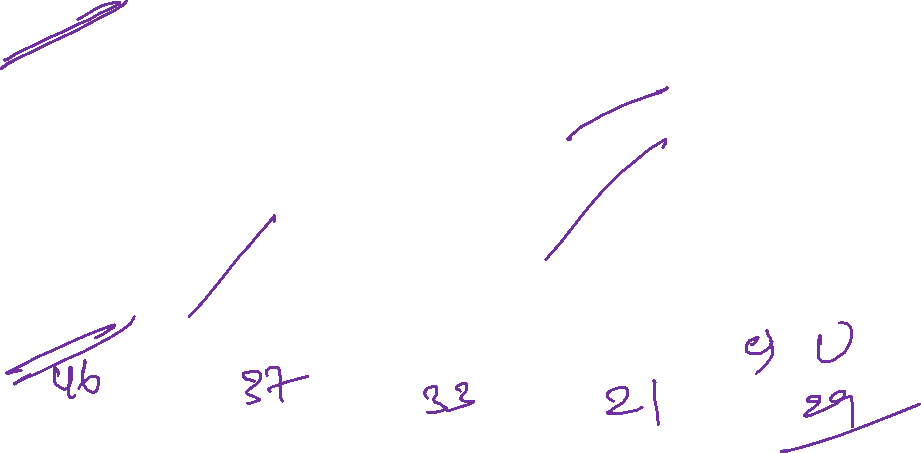 e) U
46 37 33 21 29